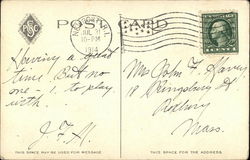 POST CARD
JUL
10-PM
1914
Having a good
time. But no
one - 1. to play
with.
J.F.H.
Mr John F.
18 Kingsbury St
Roxbury
Mass.
THIS SPACE MAY BE USED FOR MESSAGE
THIS SPACE FOR THE ADDRESS